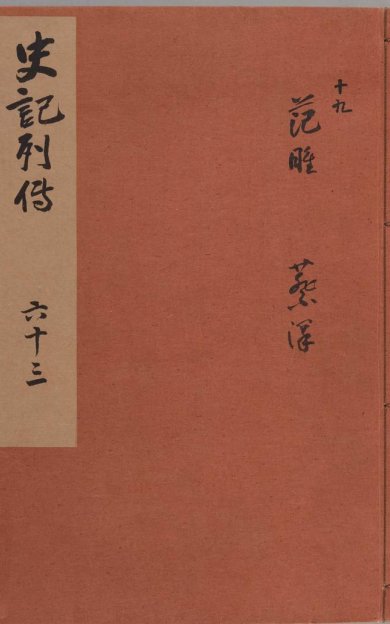 十九
范雎
蔡澤
史記列傳
六十三